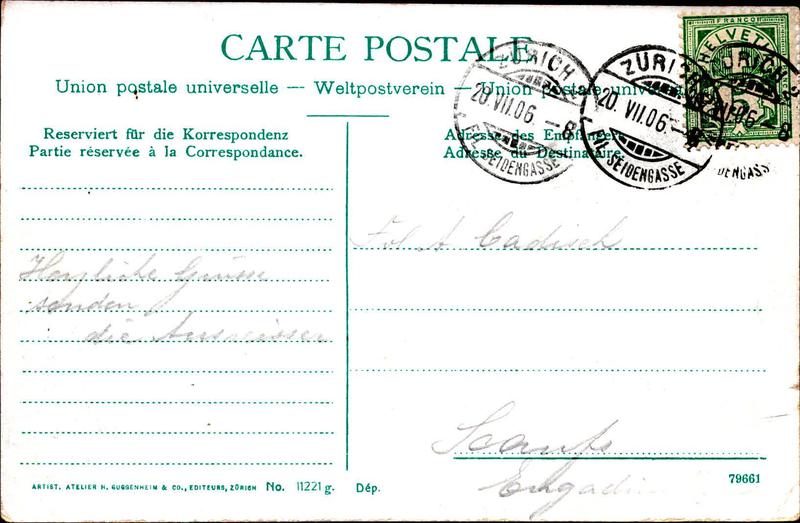 CARTE POSTALE
Union postale universelle — Weltpostverein — Union postale univers
Reserviert für die Korrespondenz
Partie réservée à la Correspondance.
Adresse des Empfängers
Adresse du Destinataire.
FRANCO
HELVETIA
ZÜRICH
20.VII.06.–8
FIL. SEIDENGASSE
ZÜRICH
20.VII.06.–8
FIL. SEIDENGASSE
ZÜRICH
VII.06.–8
SEIDENGASSE
Frl A. Cadisch
Herzliche Grüsse
senden
die Ausreisser
Scanfs
Engadin
ARTIST. ATELIER H. GUGGENHEIM & CO., EDITEURS, ZÜRICH No. 11221 g. Dép.
79661